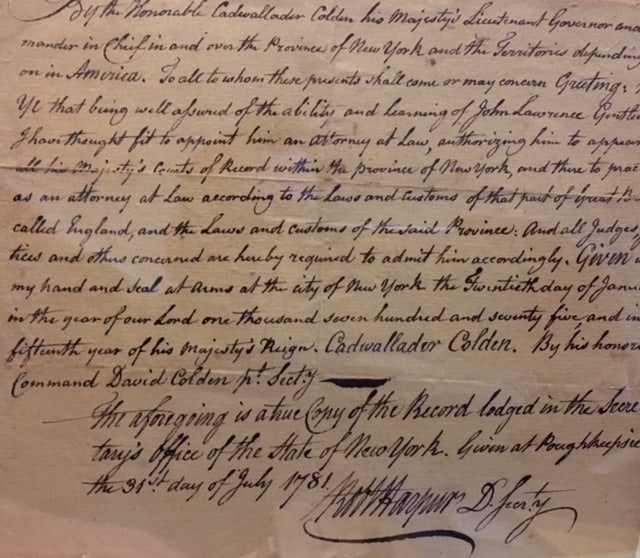 By the Honorable Cadwallader Colden his Majesty's Lieutenant Governor and
mander in Chief in and over the Province of New York and the Territories depending
on in America. To all to whom these presents shall come or may concern Greeting:
Ye that being well assured of the ability and Learning of John Lawrence Gentle
I have thought fit to appoint him an Attorney at Law, authorizing him to appear
all his Majesty's Courts of Record within the province of New York, and there to prac
as an attorney at Law according to the Laws and Customs of that part of Great B
called England, and the Laws and customs of the said Province: And all Judges,
tices and others concerned are hereby required to admit him accordingly. Given
my hand and seal at arms at the city of New York the Twentieth day of Janu
in the year of our Lord one thousand seven hundred and seventy five, and in
fifteenth year of his Majesty's Reign. Cadwallader Colden. By his honors
Command David Colden pt. Sect.y
The aforegoing is a true Copy of the Record lodged in the Secre
tary's Office of the State of New York. Given at Poughkeepsie
the 31st day of July 1781.
Robt Harpur D. Secr.ty